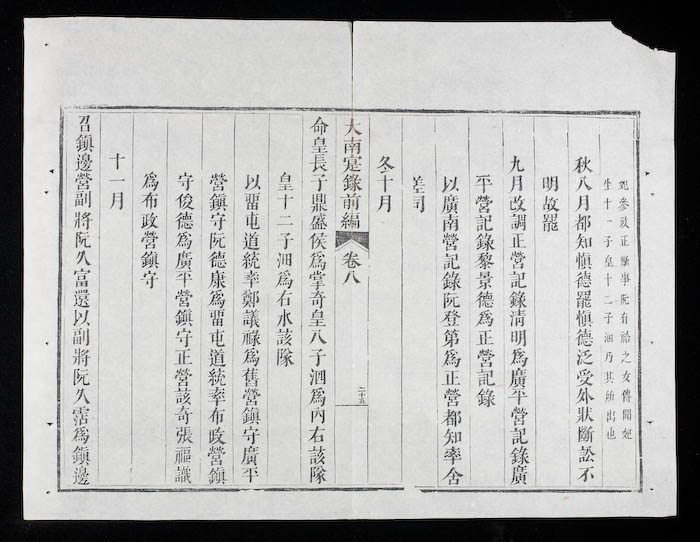 妃參政正斷事阮有餄之女傳聞妃
生十一子皇十二子泗乃其所出也
秋八月都知愼德罷愼德泛受外狀斷訟不
明故罷
九月改調正營記錄淸明爲廣平營記錄廣
平營記錄黎景德爲正營記錄
以廣南營記錄阮登第爲正營都知率舍
差司
冬十月
大南寔錄前編 卷八 二十五
命皇長子鼎盛侯爲掌奇皇八子泗爲內右該隊
皇十二子泗爲右水該隊
以畱屯道統率鄭議祿爲舊營鎭守廣平
營鎭守阮德康爲畱屯道統率布政營鎭
守俊德爲廣平營鎭守正營該奇張福議
爲布政營鎭守
十一月
召鎭邊營副將阮久富還以副將阮久霑爲鎭邊